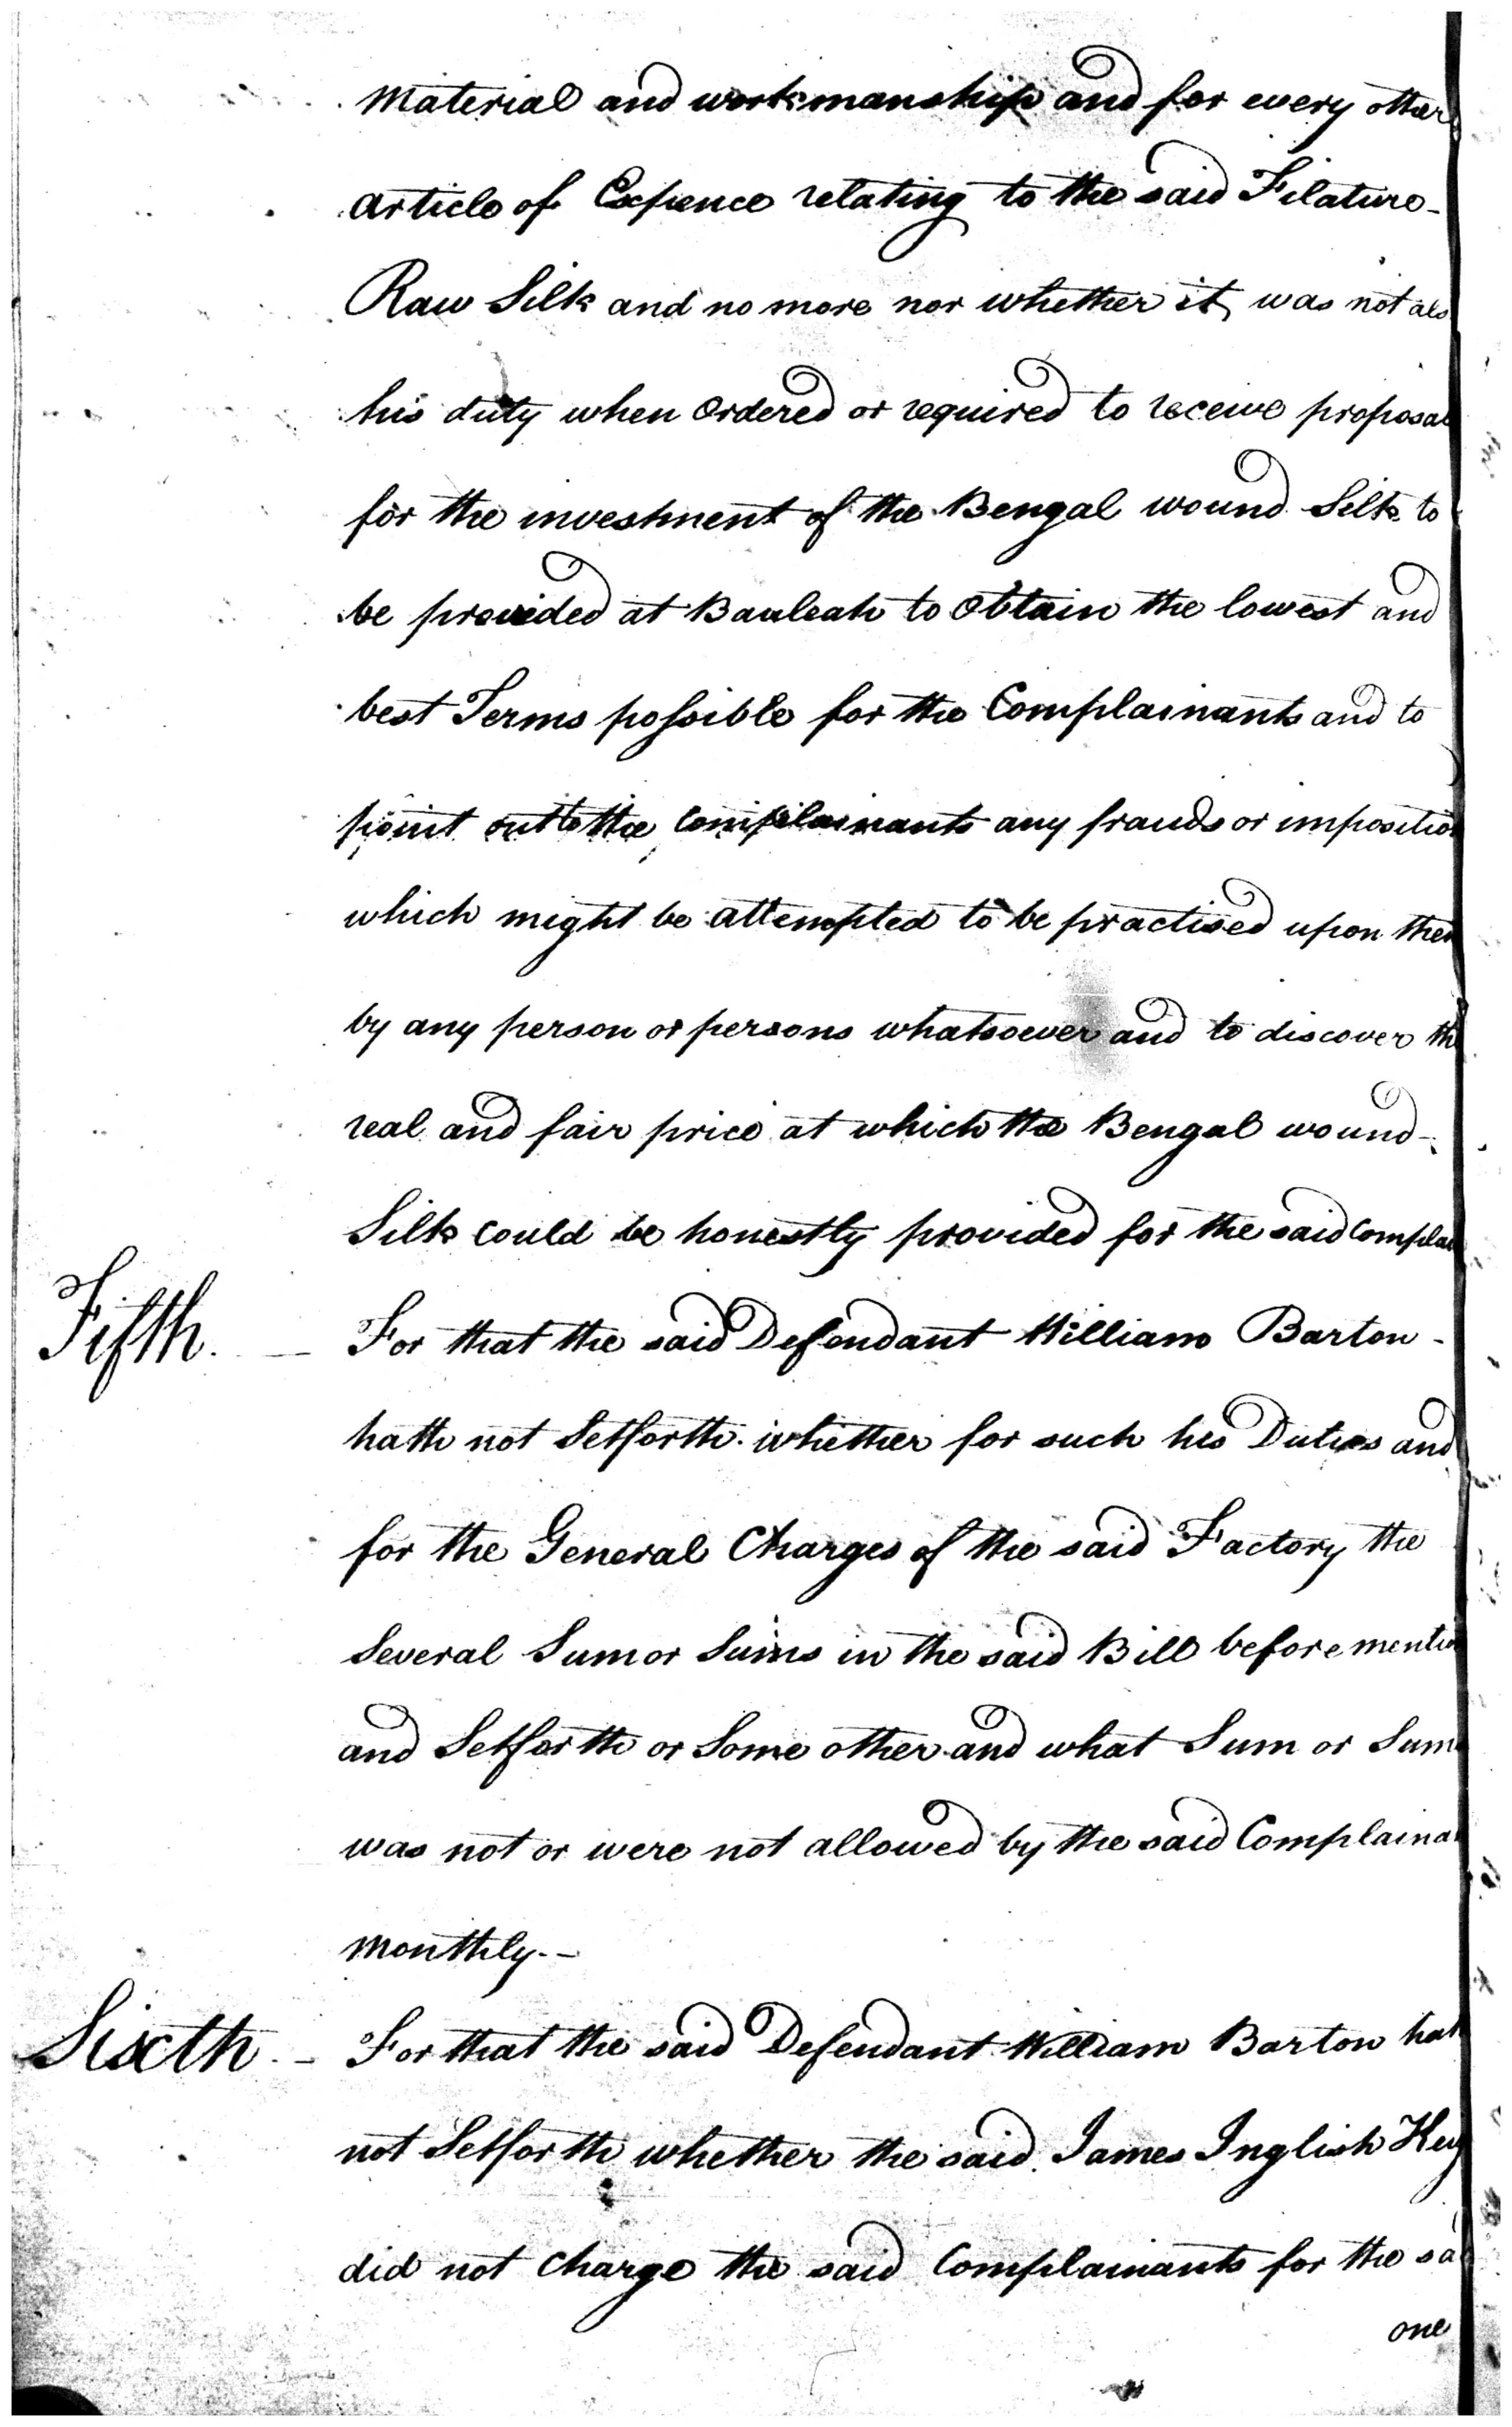 Material and workmanship and for every other
article of Expence relating to the said Filature-
Raw Silk and no more nor whether it was not als
his duty when Ordered or required to receive proposal
for the investment of the Bengal wound Silk to
be provided at Bauleah to Obtain the lowest and
best Terms possible for the Complainants and to
point out to the Complainants any frauds or impositio
which might be attempted to be practised upon them
by any person or persons whatsoever and to discover th
real and fair price at which the Bengal wound-
Silk could be honestly provided for the said Complai
Fifth. — For that the said Defendant William Barton -
hath not Setforth whether for such his Duties and
for the General Charges of the said Factory the
Several Sum or Sums in the said Bill before mentio
and Setforth or Some other and what Sum or Sums
was not or were not allowed by the said Complaina
monthly.-
Sixth - For that the said Defendant William Barton hath
not Setforth whether the said James Inglish Key
did not charge the said Complainants for the sa
one